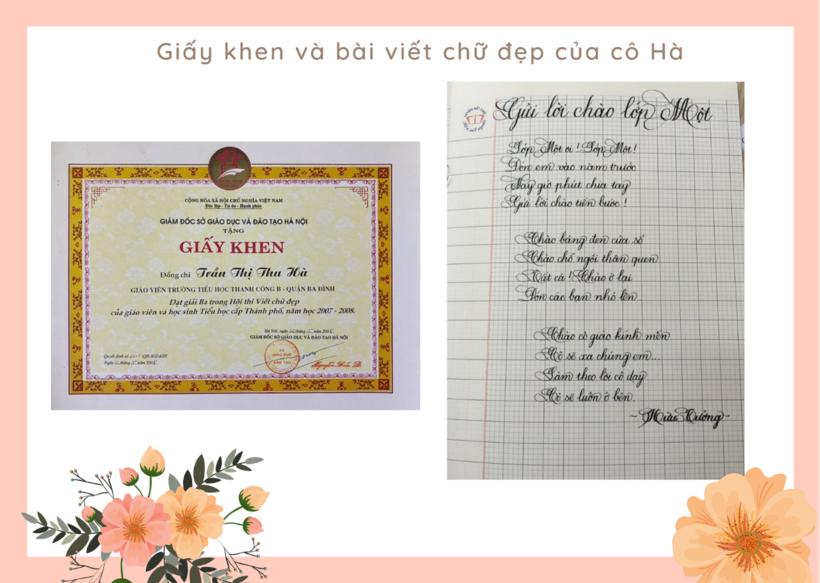 Giấy khen và bài viết chữ đẹp của cô Hà
CỘNG HÒA XÃ HỘI CHỦ NGHĨA VIỆT NAM
Độc lập - Tự do - Hạnh phúc
GIÁM ĐỐC SỞ GIÁO DỤC VÀ ĐÀO TẠO HÀ NỘI
TẶNG
GIẤY KHEN
Đồng chí Trần Thị Thu Hà
GIÁO VIÊN TRƯỜNG TIỂU HỌC THÀNH CÔNG B - QUẬN BA ĐÌNH
Đạt giải Ba trong Hội thi Viết chữ đẹp
của giáo viên và học sinh Tiểu học cấp Thành phố, năm học 2007 - 2008.
GIÁM ĐỐC SỞ GIÁO DỤC VÀ ĐÀO TẠO HÀ NỘI
Gửi lời chào lớp Một
Lớp Một ơi! Lớp Một!
Đón em vào năm trước
Nay giờ phút chia tay
Gửi lời chào tiến bước!
Chào bảng đen cửa sổ
Chào chỗ ngồi thân quen
Tất cả! Chào ở lại
Đón các bạn nhỏ lên
Chào cô giáo kính mến
Cô sẽ xa chúng em...
Làm theo lời cô dạy
Cô sẽ luôn ở bên.
- Hữu Tưởng -